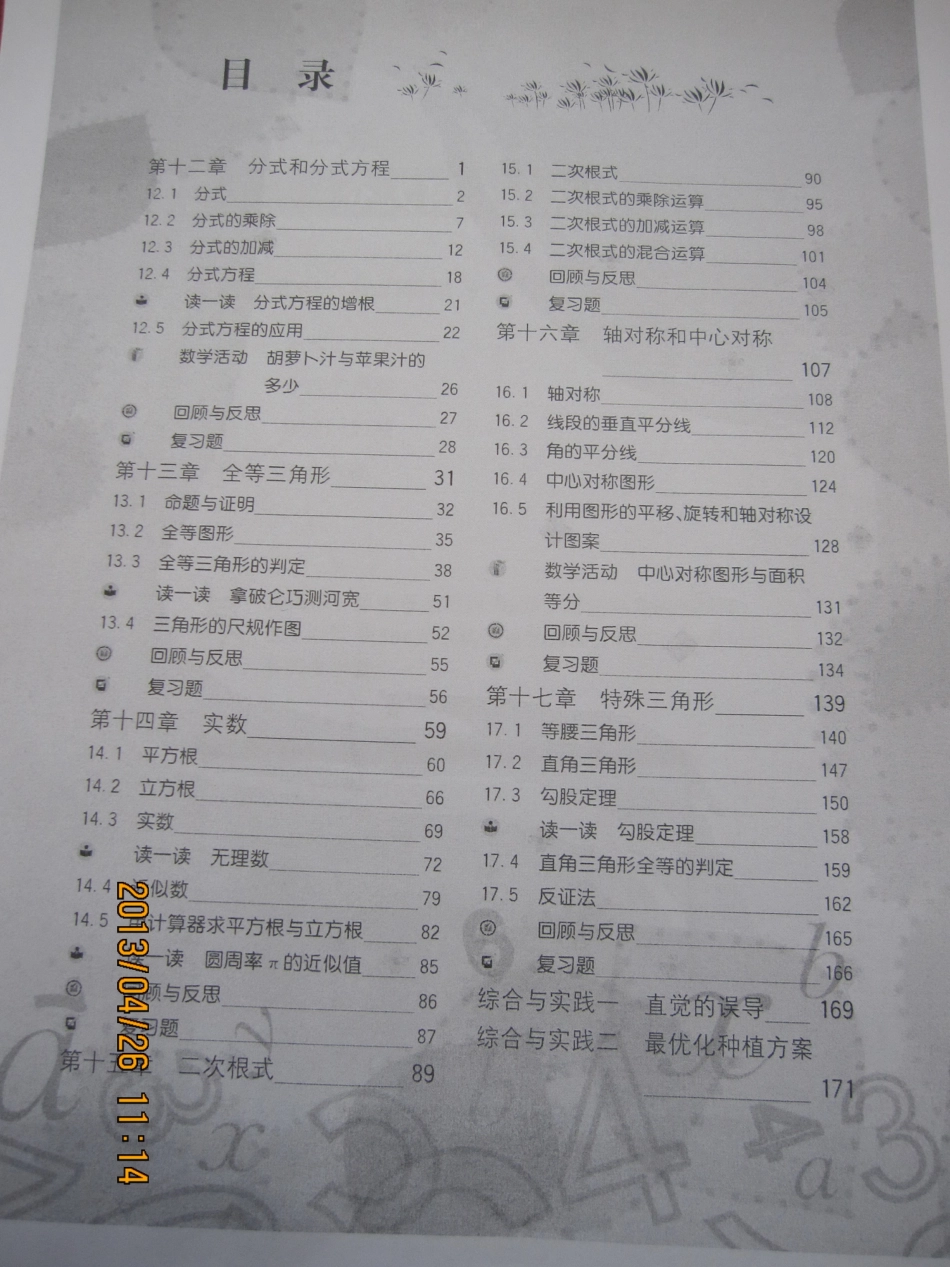 目 录
第十二章 分式和分式方程 1
12.1 分式 2
12.2 分式的乘除 7
12.3 分式的加减 12
12.4 分式方程 18
读一读 分式方程的增根 21
12.5 分式方程的应用 22
数学活动 胡萝卜汁与苹果汁的
多少 26
回顾与反思 27
复习题 28
第十三章 全等三角形 31
13.1 命题与证明 32
13.2 全等图形 35
13.3 全等三角形的判定 38
读一读 拿破仑巧测河宽 51
13.4 三角形的尺规作图 52
回顾与反思 55
复习题 56
第十四章 实数 59
14.1 平方根 60
14.2 立方根 66
14.3 实数 69
读一读 无理数 72
14.4 近似数 79
14.5 用计算器求平方根与立方根 82
读一读 圆周率π的近似值 85
回顾与反思 86
复习题 87
第十五章 二次根式 89
15.1 二次根式 90
15.2 二次根式的乘除运算 95
15.3 二次根式的加减运算 98
15.4 二次根式的混合运算 101
回顾与反思 104
复习题 105
第十六章 轴对称和中心对称
107
16.1 轴对称 108
16.2 线段的垂直平分线 112
16.3 角的平分线 120
16.4 中心对称图形 124
16.5 利用图形的平移、旋转和轴对称设
计图案 128
数学活动 中心对称图形与面积
等分 131
回顾与反思 132
复习题 134
第十七章 特殊三角形 139
17.1 等腰三角形 140
17.2 直角三角形 147
17.3 勾股定理 150
读一读 勾股定理 158
17.4 直角三角形全等的判定 159
17.5 反证法 162
回顾与反思 165
复习题 166
综合与实践一 直觉的误导 169
综合与实践二 最优化种植方案
171
2013/04/26 11:14